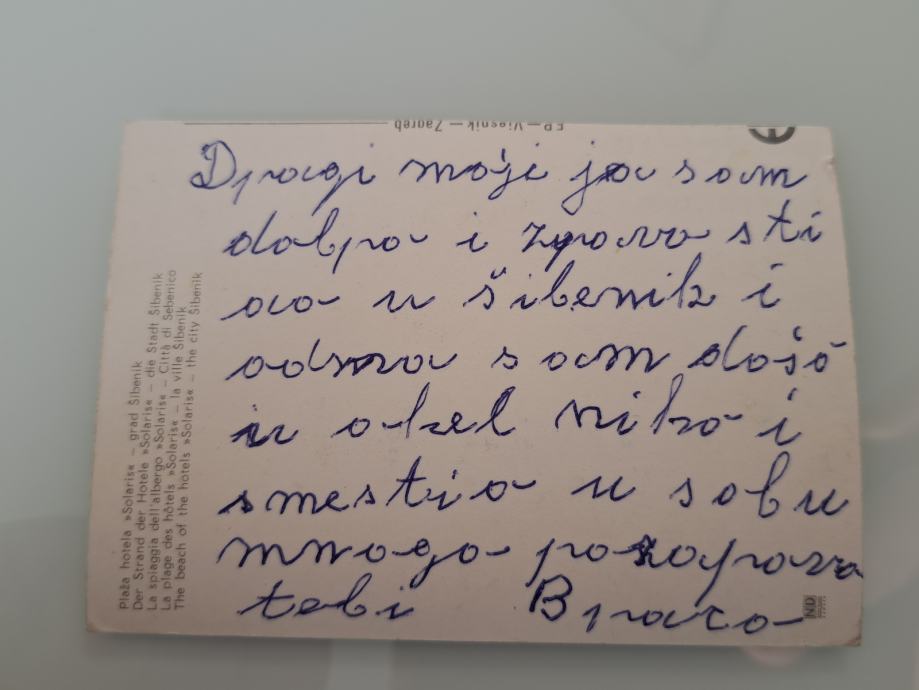 Vjesnik — Zagreb
Dragi moji ja sam
dobro i zdravo sti
ao u šibenik i
odma sam došo
u otel niko i
smestio u sobu
mnogo pozdrava
tebi Braco
Plaža hotela »Solaris« – grad Šibenik
Der Strand der Hotele »Solaris« – die Stadt Šibenik
La spiaggia dell'albergo »Solaris« – Città di Sebenico
La plage des hôtels »Solaris« – la ville Šibenik
The beach of the hotels »Solaris« – the city Šibenik
ND